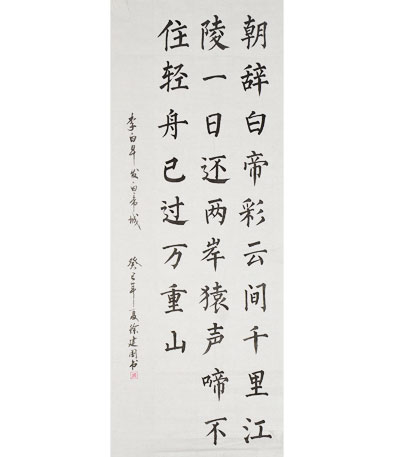 朝辞白帝彩云间千里江
陵一日还两岸猿声啼不
住轻舟已过万重山
李白早发白帝城 癸巳年夏徐建国书